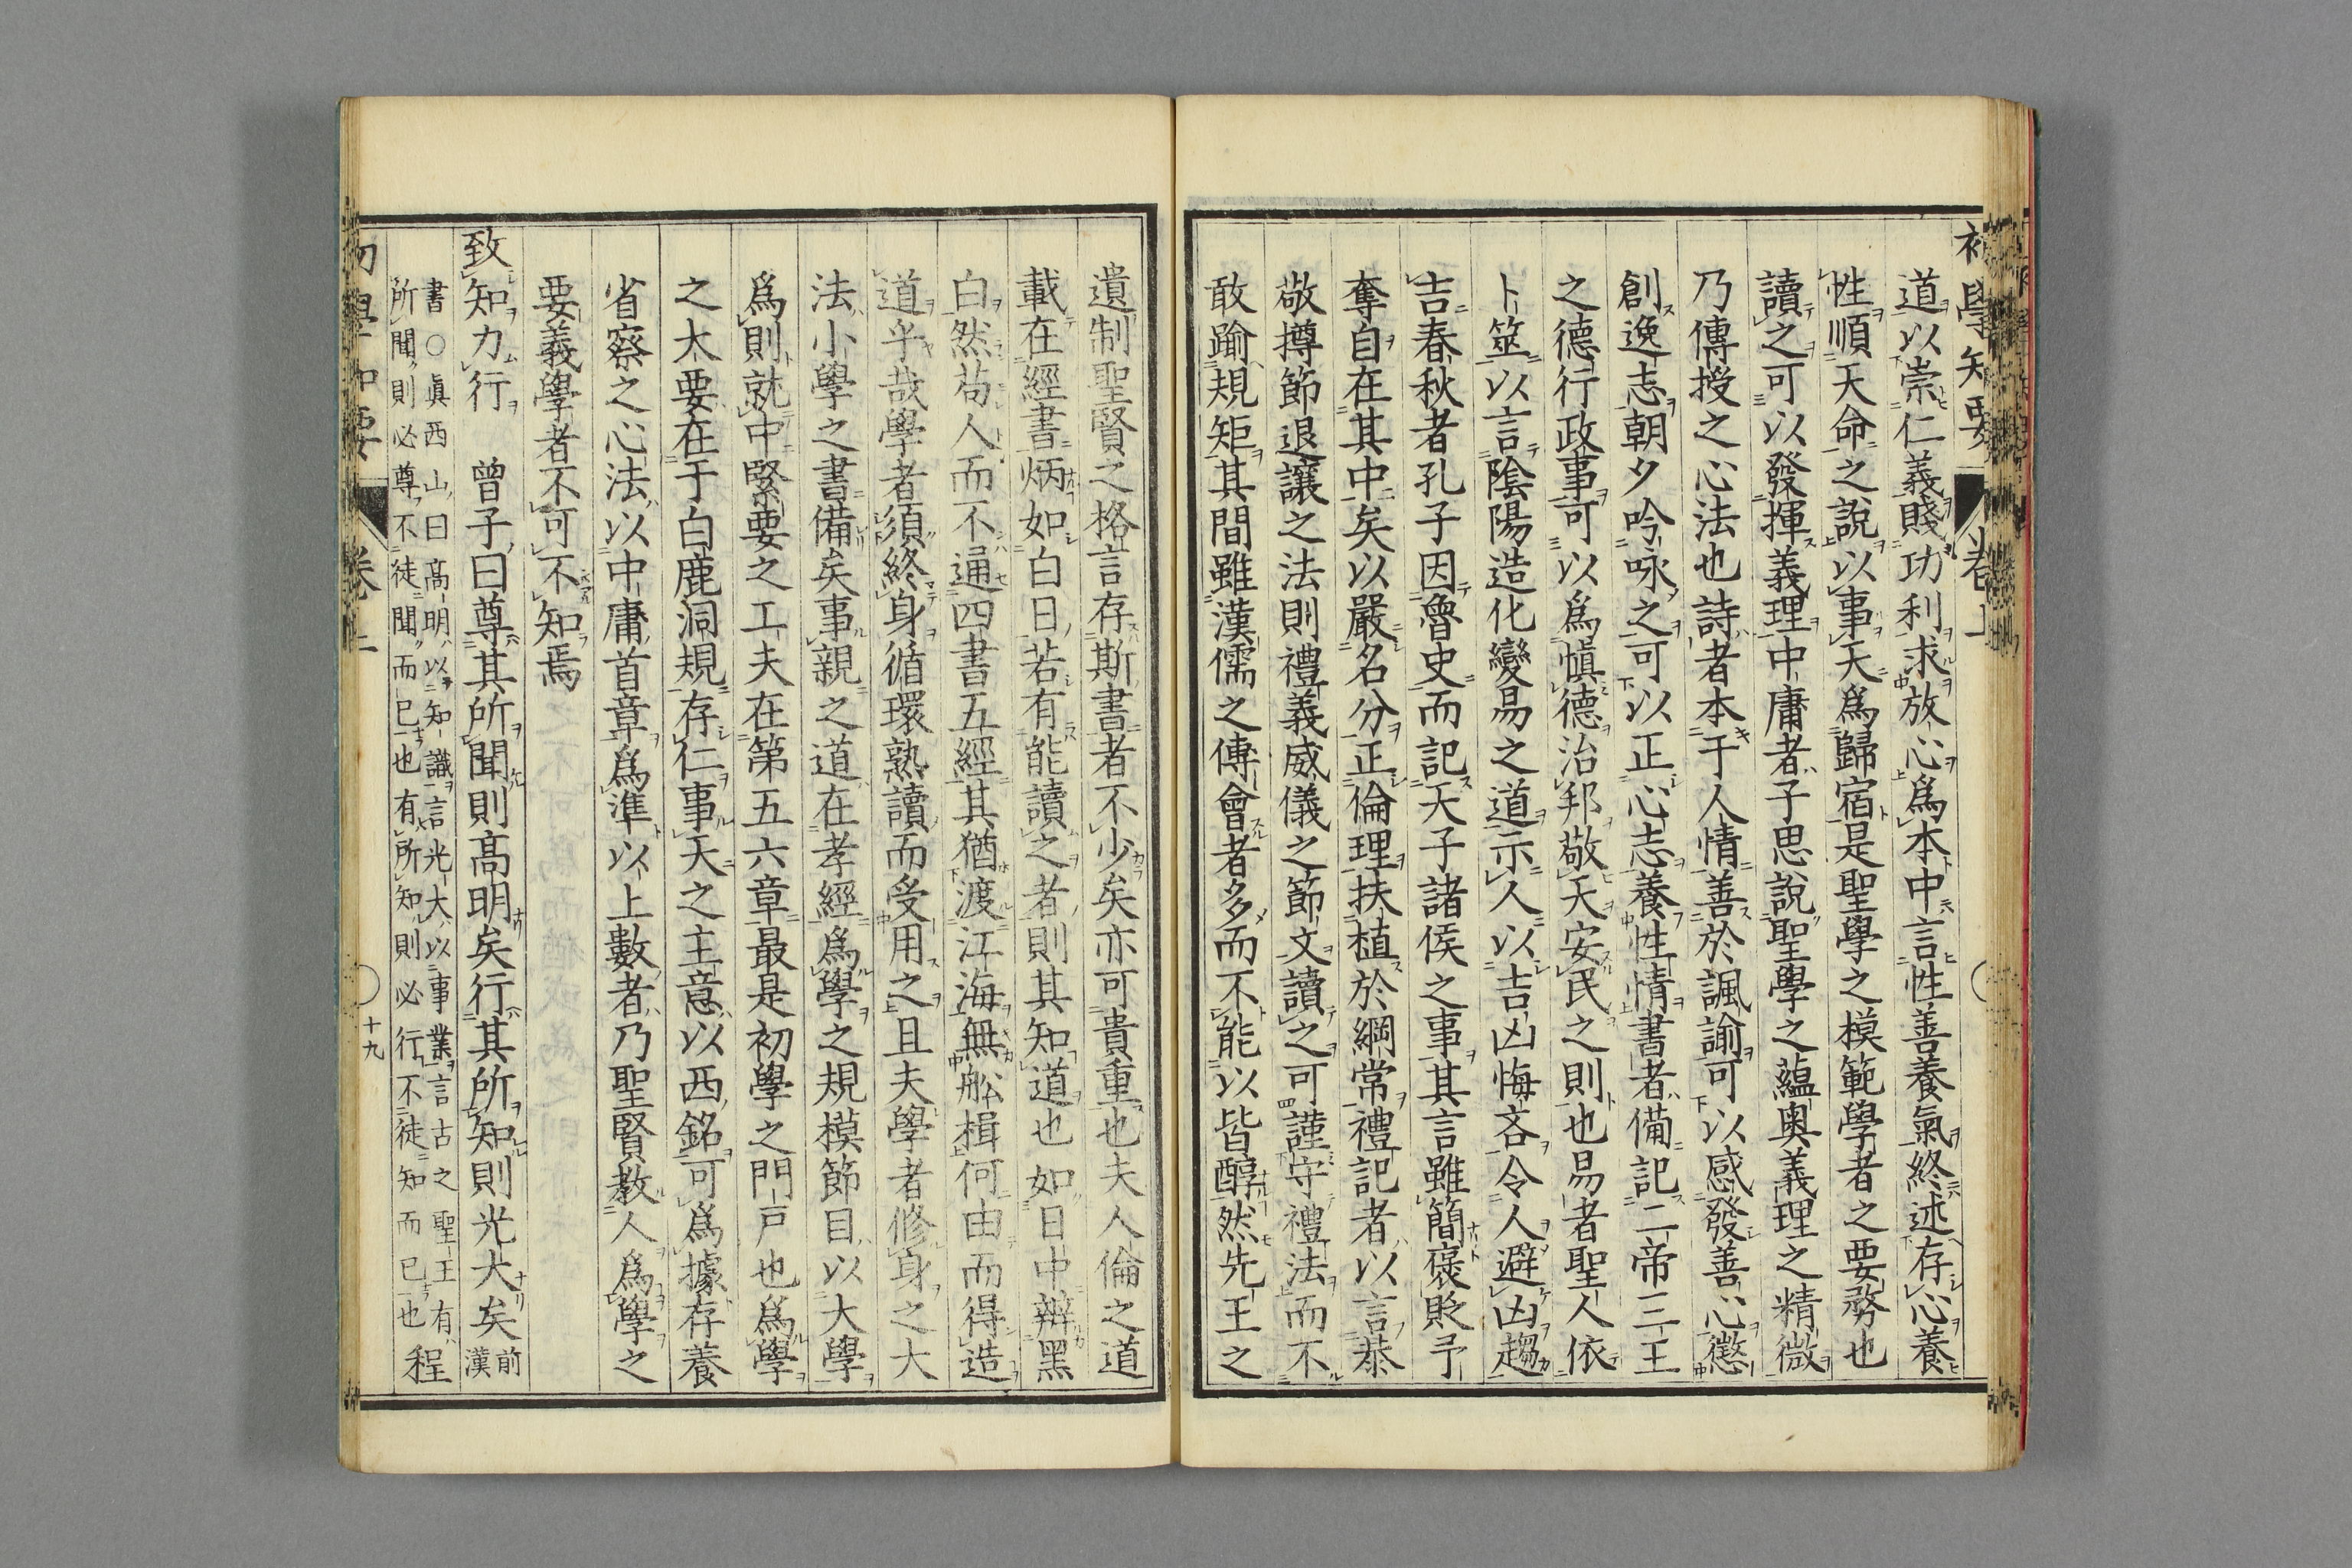 初學知要 卷上
道以崇仁義賤功利求放心爲本中言性善養氣終述存心養
性順天命之說以事天爲歸宿是聖學之模範學者之要務也
讀之可以發揮義理中庸者子思說聖學之蘊奧義理之精微
乃傳授之心法也詩者本于人情善於諷諭可以感發善心懲
創逸志朝夕吟咏之可以正心志養性情書者備記二帝三王
之德行政事可以爲愼德治邦敬天安民之則也易者聖人依
卜筮以言陰陽造化變易之道示人以吉凶悔吝令人避凶趨
吉春秋者孔子因魯史而記天子諸侯之事其言雖簡襃貶予
奪自在其中矣以嚴名分正倫理扶植於綱常禮記者以言恭
敬撙節退讓之法則禮義威儀之節文讀之可謹守禮法而不
敢踰規矩其間雖漢儒之傳會者多而不能以皆醇然先王之
遺制聖賢之格言存斯書者不少矣亦可貴重也夫人倫之道
載在經書炳如白日若有能讀之者則其知道也如日中辨黑
白然苟人而不通四書五經其猶渡江海無舩楫何由而得造
道乎哉學者須終身循環熟讀而受用之且夫學者修身之大
法小學之書備矣事親之道在孝經爲學之規模節目以大學
爲則就中緊要之工夫在第五六章最是初學之門戸也爲學
之大要在于白鹿洞規存仁事天之主意以西銘可爲據存養
省察之心法以中庸首章爲準以上數者乃聖賢教人爲學之
要義學者不可不知焉
致知力行 曾子曰尊其所聞則高明矣行其所知則光大矣前漢
書○眞西山曰高明以知識言光大以事業言古之聖王有
所聞則必尊不徒聞而已也有所知則必行不徒知而已也 程
初學知要 卷上 十九